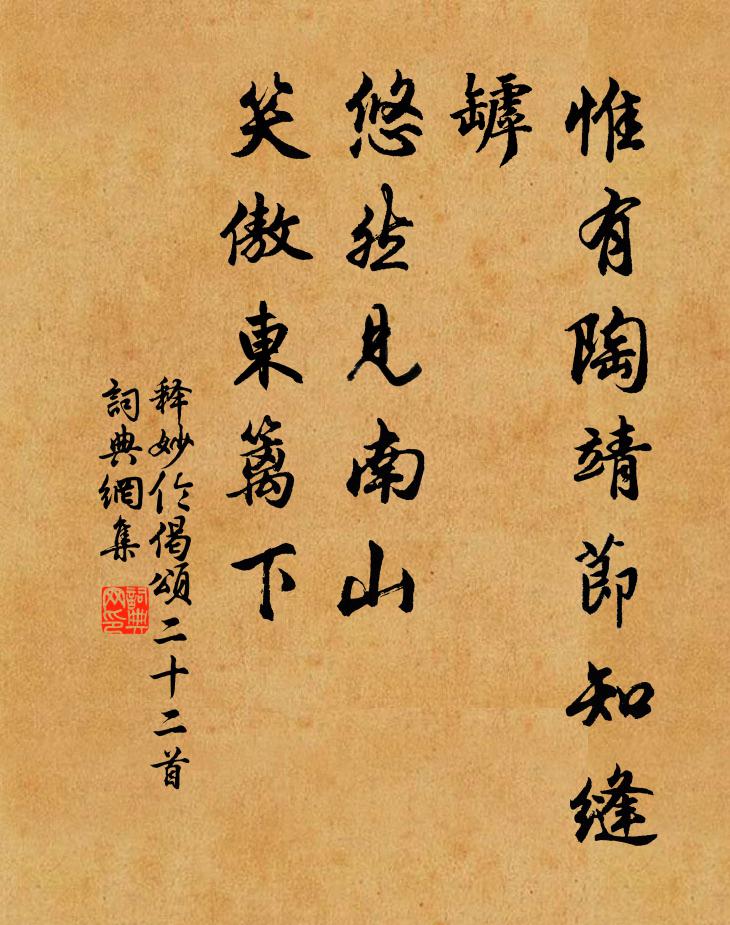 惟有陶靖節知縫
罅
悠然見南山
笑傲東籬下
释妙伦偈頌二十二首
詞典網集
詞典網印